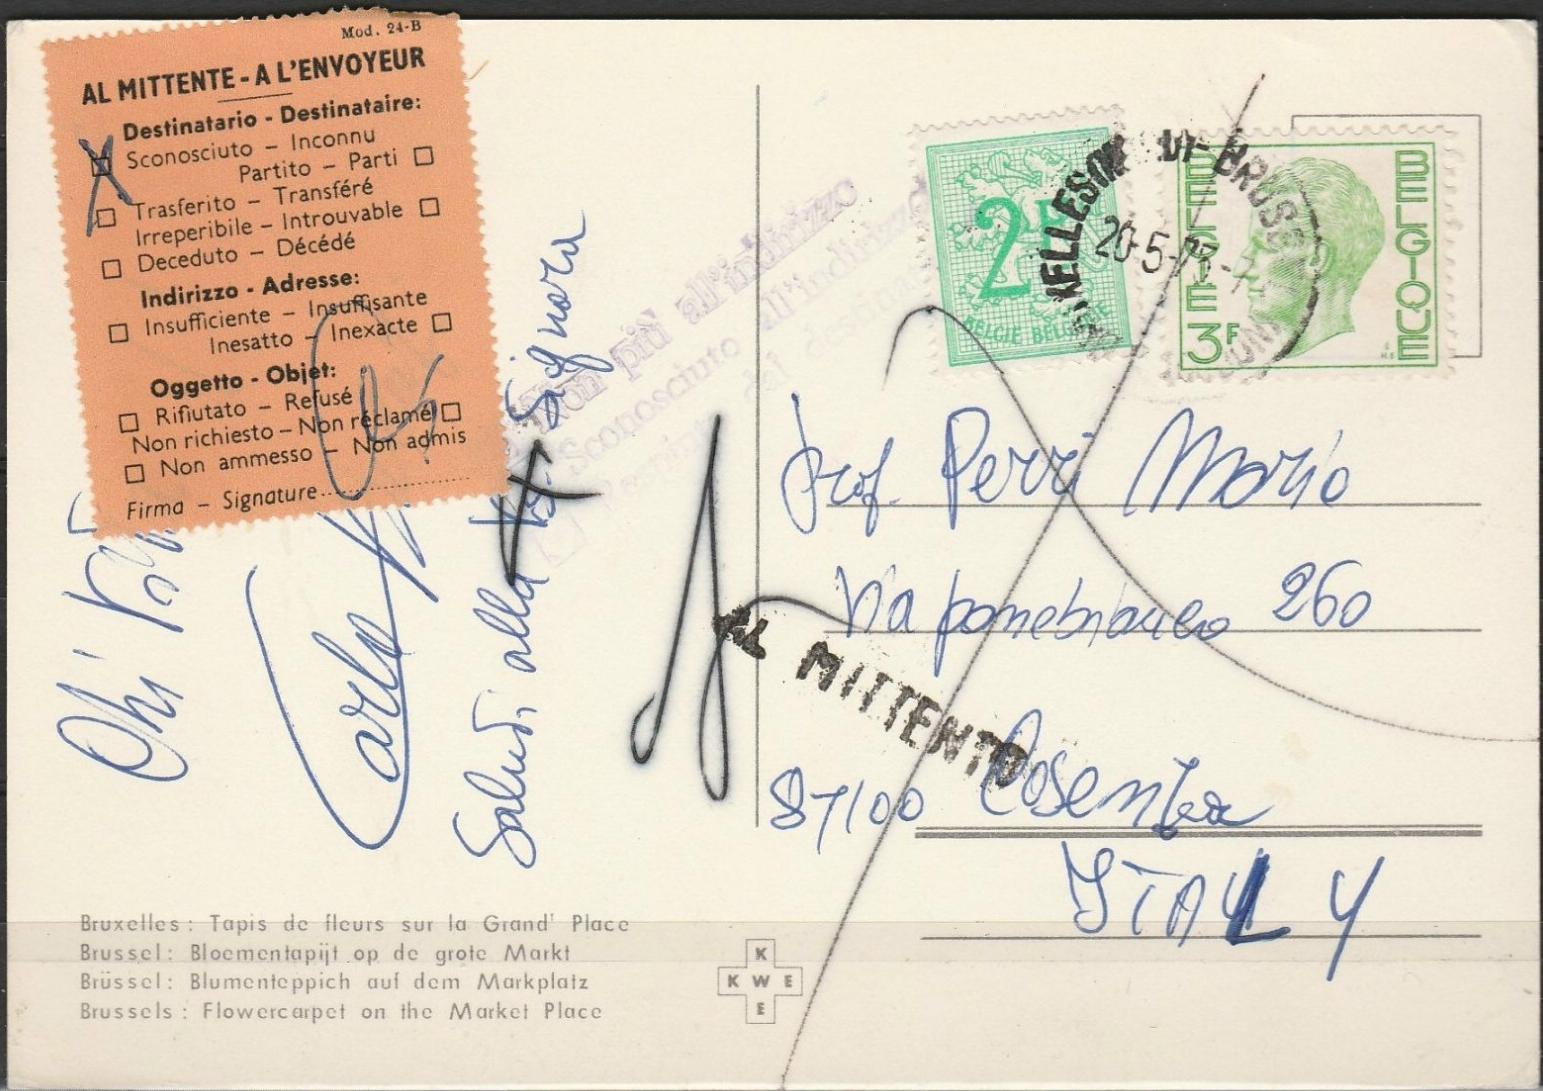 Mod. 24-B
AL MITTENTE - A L'ENVOYEUR
Destinatario - Destinataire:
Sconosciuto - Inconnu
Partito - Parti
Trasferito - Transféré
Irreperibile - Introuvable
Deceduto - Décédé
Indirizzo - Adresse:
Insufficiente - Insuffisante
Inesatto - Inexacte
Oggetto - Objet:
Rifiutato - Refusé
Non richiesto - Non réclamé
Non ammesso - Non admis
Firma - Signature
Ohi
Carlo
Saludi alla Signora
Non più all'indirizzo
Sconosciuto all'indirizzo
2F
BELGIE BELGIQUE
20-5-
BELGIE
3F
BELGIQUE
Prof. Perri Mario
Via panebianco 260
AL MITTENTO
87100 Cosenza
ITALY
Bruxelles : Tapis de fleurs sur la Grand' Place
Brussel : Bloementapijt op de grote Markt
Brüssel : Blumenteppich auf dem Markplatz
Brussels : Flowercarpet on the Market Place
K
K W E
E